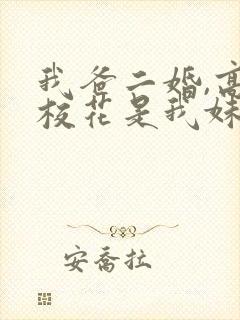 我爸二婚,高
校花是我妹
安乔拉